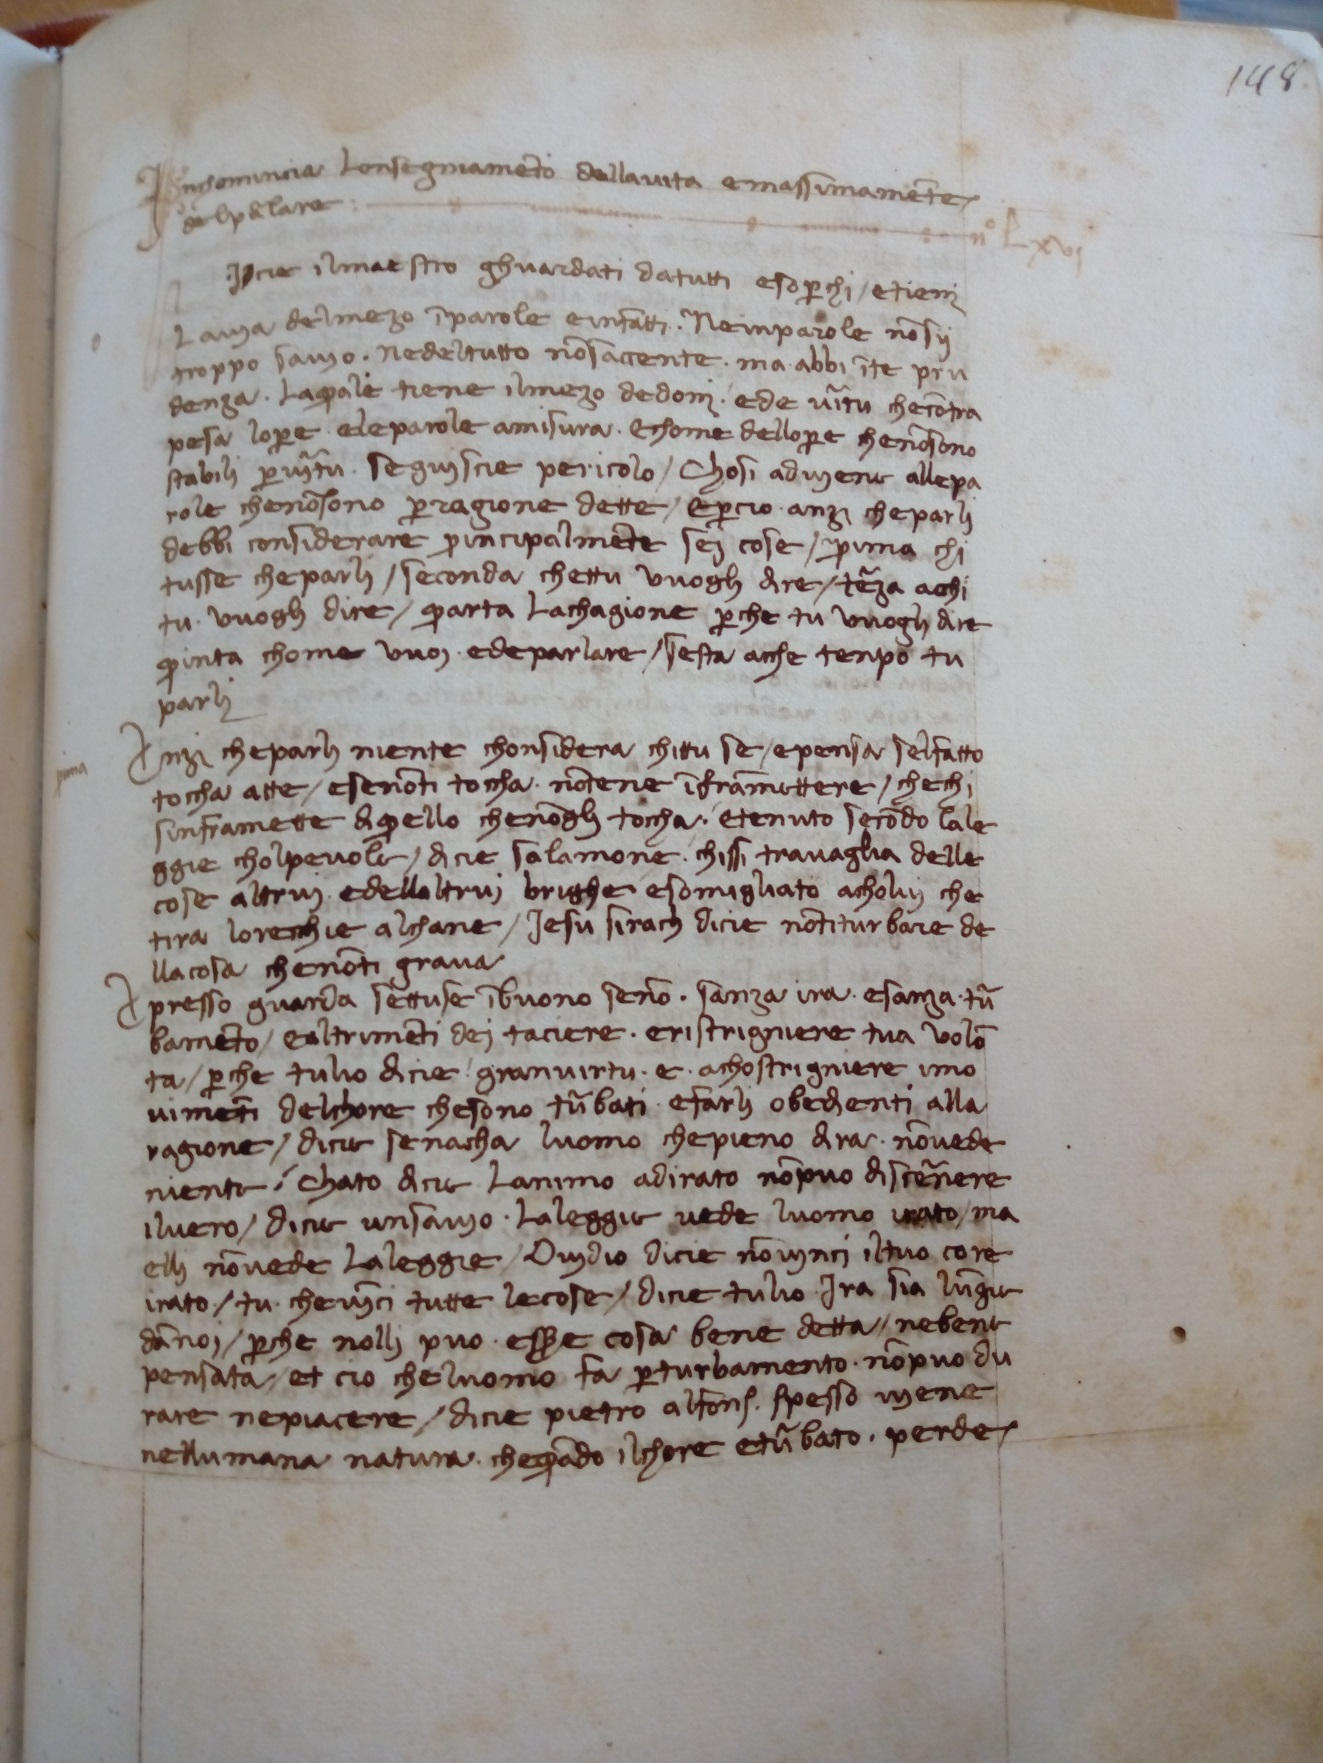 148
Inchomincia Lonsegniamēto dellavita emassimamēte
delparlare n° Lxvi
Dicie ilmaestro ghuardati datutti esoꝑchi / etieni
Lavia delmezo īparole einfatti. Neinparole nōsij
troppo savio. nedeltutto nōsaccente. ma abbi īte pru
denza. Laqale tiene ilmezo dedoni. ede vītu checōtra
pesa loꝑe eleparole amisura. Echome delloꝑe chenōsono
stabili ꝑvītu. seguiscie pericolo / Chosi adviene allepa
role chenōsono ꝑragione dette / Eꝑcio anzi cheparli
debbi considerare principalmēte sei cose / prima chi
tusse cheparli / seconda chettu vuogli dire / tēza achi
tu vuogli dire / qarta Lachagione ꝑche tu vuogli dire
qinta chome vuoi edeparlare / sesta acche tenpo tu
parli
prima
Anzi cheparli niente chonsidera chittu se / epensa selfatto
toccha atte / esenōti toccha. nōtene īframettere / chechi
sinframette diqello chenōgli toccha. etenuto secōdo lale
ggie cholpevole / dicie salamone. chissi travaglia delle
cose altrui edellaltrui brighe esomigliato acholui che
tira lorecchie alchane / Jesu sirach dicie nōtiturbare de
llacosa chenōti grava
Apresso guarda settuse ībuono seno. sanza ira. esanza tū
bamēto / ealtrimēti dei taciere. eristrigniere tua volō
ta / ꝑche tulio dicie granvirtu. e achostrigniere imo
vimēti delchore chesono tūbati efarli obedienti alla
ragione / dicie senacha luomo chepieno dira. nōvede
niente / Chato dicie Lanimo adirato nōpuo discēnere
ilvero / dicie unsavio. Laleggie vede luomo irato / ma
elli nōvede Laleggie / Ovidio dicie nōvinci iltuo core
irato / tu chevīci tutte lecose / dicie tulio Ira sia lūgie
dānoi / ꝑche nolli puo essere cosa bene detta // nebene
pensata / et cio cheluomo fa ꝑturbamento. nōpuo du
rare nepiacere / dicie pietro alfons. spesso viene
nellumana natura. cheqādo ilchore etūbato. perde